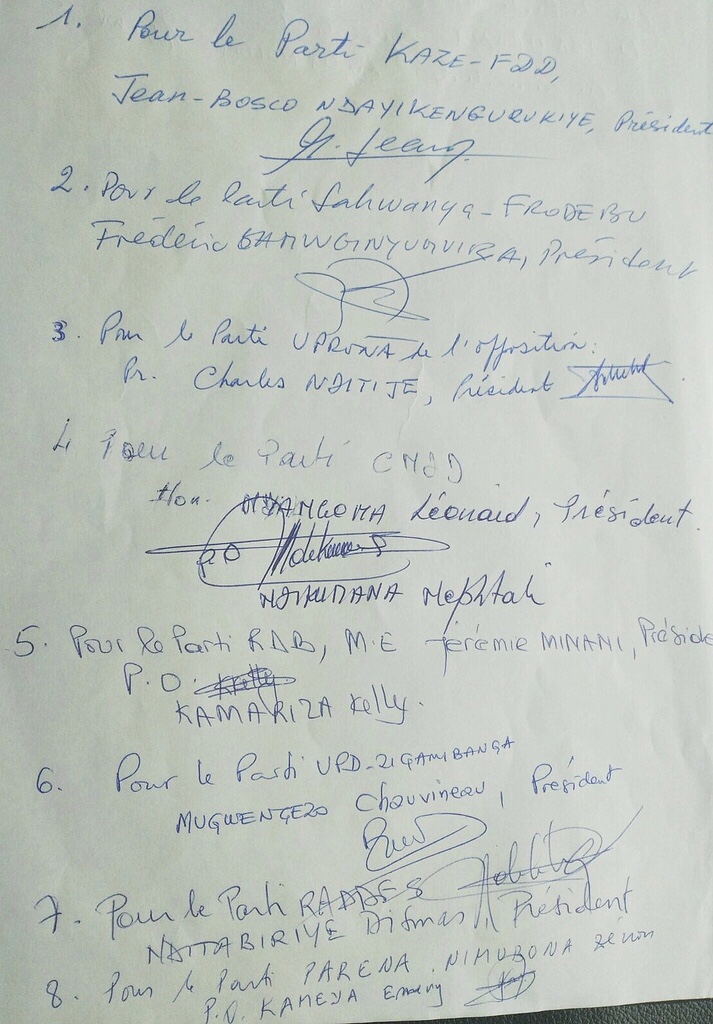 1. Pour le Parti KAZE-FDD,
Jean-BOSCO NDAYIKENGURUKIYE, Président
2. Pour le Parti Sahwanya-FRODEBU
Frédéric BAMVUGINYUMVIRA, Président
3. Pour le Parti UPRONA de l'opposition:
Pr. Charles NDITIJE, Président
4 Pour le Parti CNDD
Hon. NYANGOMA Léonard, Président.
PO
NDIKUMANA Nephtali
5. Pour le Parti RDB, M.E Jérémie MINANI, Préside
P.O.
KAMARIZA Kelly.
6. Pour le Parti UPD-ZIGAMIBANGA
MUGWENGEZO Chauvineau, Président
7. Pour le Parti RADDES
NDITABIRIYE Dismas, Président
8. Pour le Parti PARENA. NIMUBONA Zénon
P.O. KAMEYA